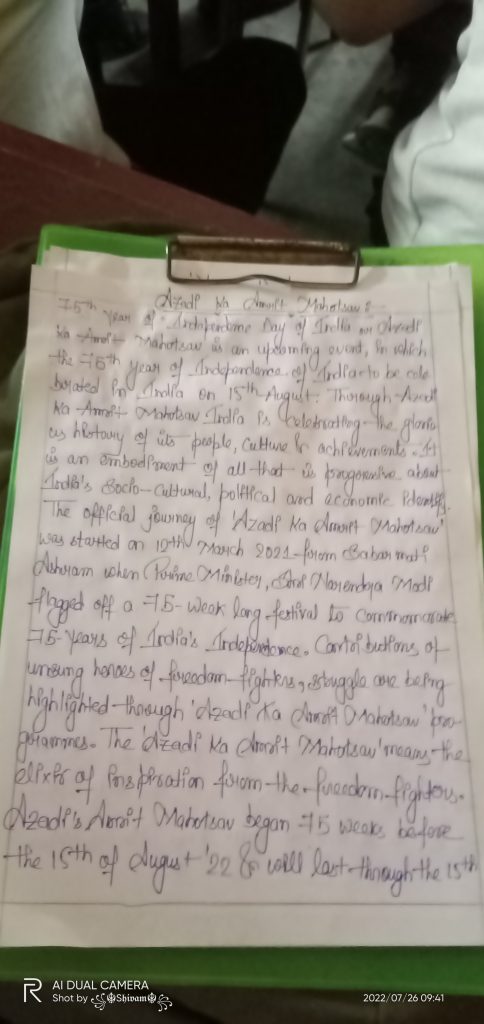 Azadi ka Amrit Mahotsav :-
75th year of Independence Day of India or Azadi
ka Amrit Mahotsav is an upcoming event, in which
the 75th year of Independence of India to be cele
brated in India on 15th August. Through Azadi
Ka Amrit Mahotsav India is celebrating the glorio
us history of its people, culture & achievements. It
is an embodiment of all that is progressive about
India's Socio-Cultural, political and economic identity.
The official journey of 'Azadi Ka Amrit Mahotsav'
was started on 12th March 2021 from Sabarmati
Ashram when Prime Minister, Shri Narendra Modi
flagged off a 75-week long festival to commomorate
75-years of India's Independence. Contributions of
unsung heroes of freedom fighters, struggle are being
highlighted through 'Azadi Ka Amrit Mahotsav' pro
grammes. The 'Azadi Ka Amrit Mahotsav' means the
elixir of inspiration from the freedom fighters.
Azadi's Amrit Mahotsav began 75 weeks before
the 15th of August '22 & will last through the 15th
AI DUAL CAMERA
Shot by Shivam
2022/07/26 09:41